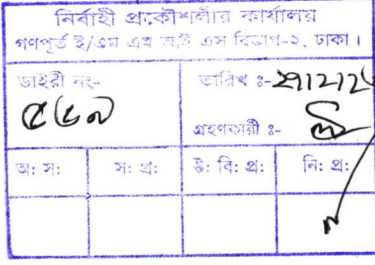 নির্বাহী প্রকৌশলীর কার্যালয়
গণপূর্ত ই/এম এম আই এস বিভাগ-২, ঢাকা।
ডাইরী নং- তারিখ ঃ-
৫৬৯
গ্রহণকারী ঃ-
অ: স: স: প্র: উ: বি: প্র: নি: প্র: